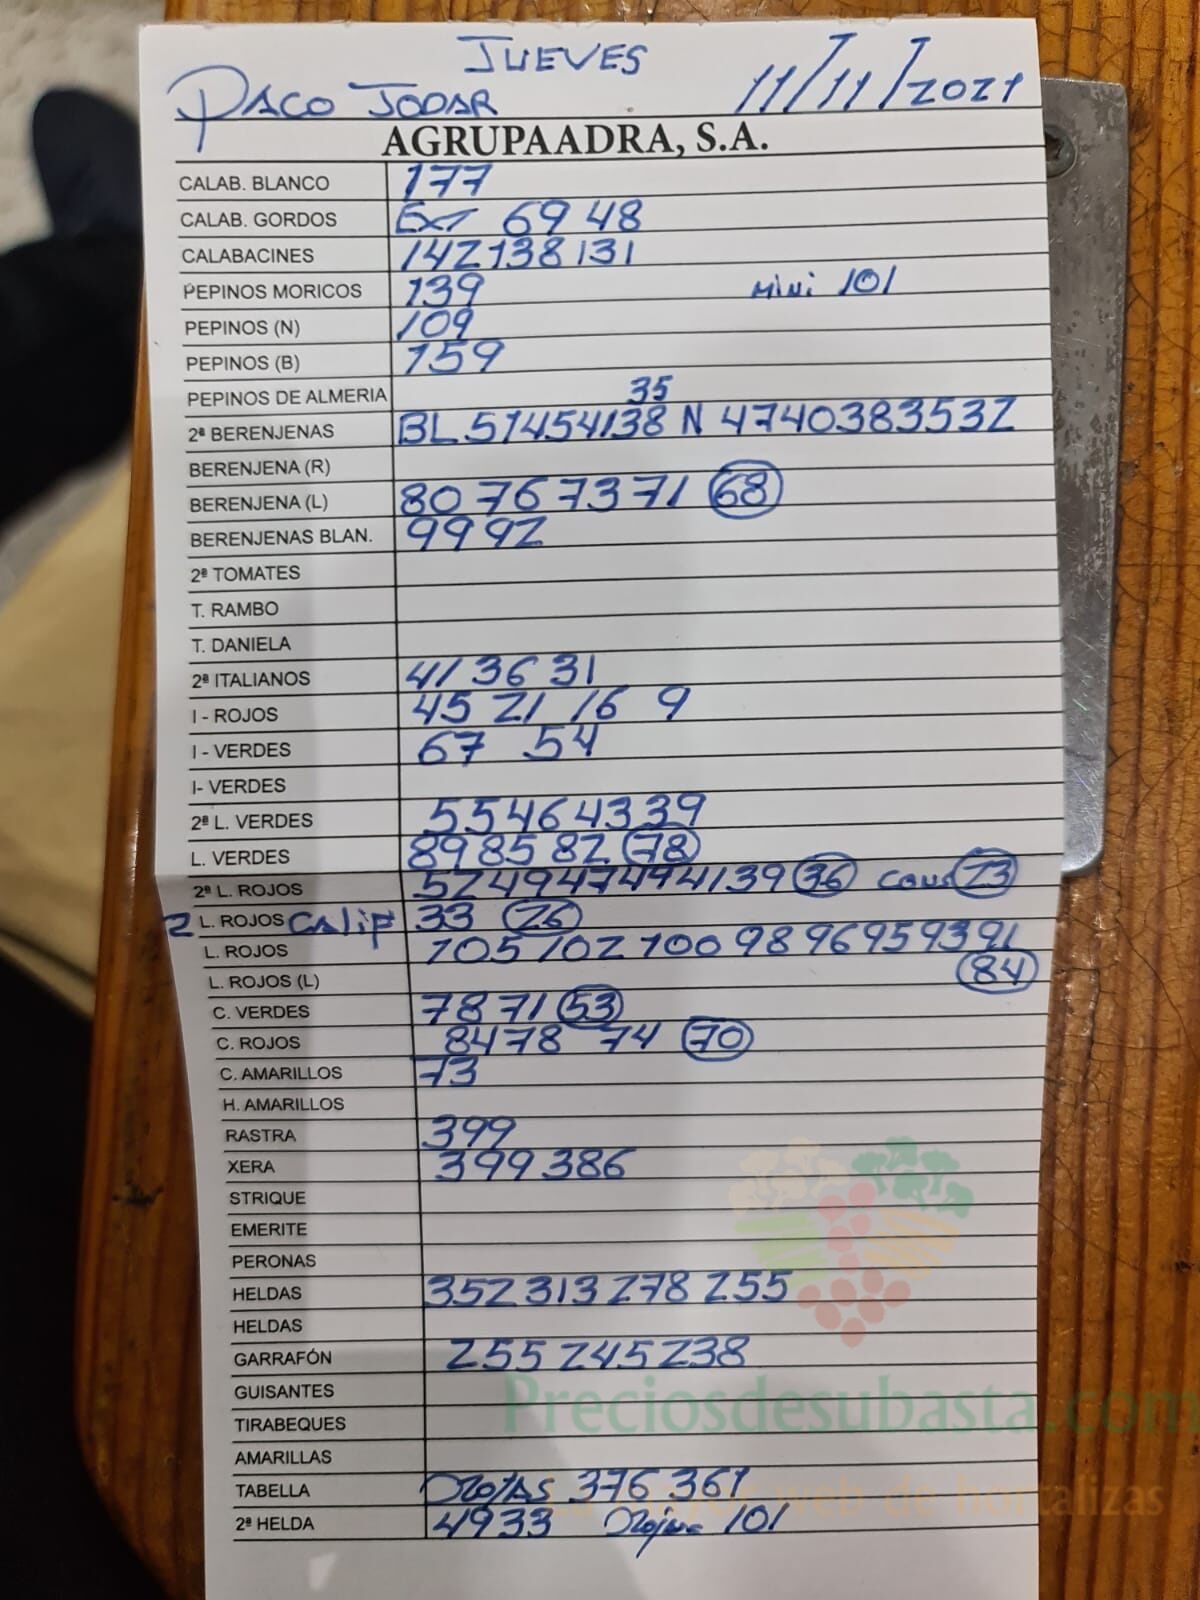 JUEVES
PACO JODAR 11/11/2021
AGRUPAADRA, S.A.
CALAB. BLANCO 177
CALAB. GORDOS Ext 69 48
CALABACINES 142 138 131
PEPINOS MORICOS 139 Mini 101
PEPINOS (N) 109
PEPINOS (B) 159
PEPINOS DE ALMERIA 35
2ª BERENJENAS BL 51 45 41 38 N 47 40 38 35 32
BERENJENA (R)
BERENJENA (L) 80 76 73 71 68
BERENJENAS BLAN. 99 92
2ª TOMATES
T. RAMBO
T. DANIELA
2ª ITALIANOS 41 36 31
I - ROJOS 45 21 16 9
I - VERDES 67 54
I- VERDES
2ª L. VERDES 55 46 43 39
L. VERDES 89 85 82 78
2ª L. ROJOS 52 49 47 44 41 39 36 Cons 23
2 L. ROJOS Calif 33 26
L. ROJOS 105 102 100 98 96 95 93 91
L. ROJOS (L) 84
C. VERDES 78 71 53
C. ROJOS 84 78 74 70
C. AMARILLOS 73
H. AMARILLOS
RASTRA 399
XERA 399 386
STRIQUE
EMERITE
PERONAS
HELDAS 352 313 278 255
HELDAS
GARRAFÓN 255 245 238
GUISANTES
Preciosdesubasta.com
TIRABEQUES
AMARILLAS
TABELLA Rojas 376 361
web de hortalizas
2ª HELDA 49 33 Roja 101